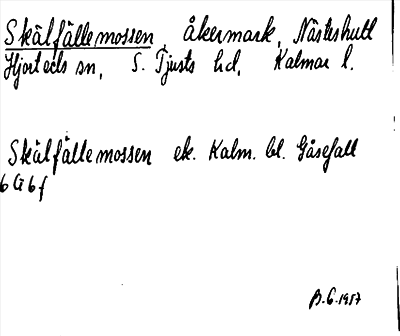 Skälfällemossen, åkermark, Nästeshult
Hjorteds sn, S. Tjusts hd, Kalmar l.
Skälfällemossen ek. Kalm. bl. Gåsefall
6 G 6 f
B.G. 1957